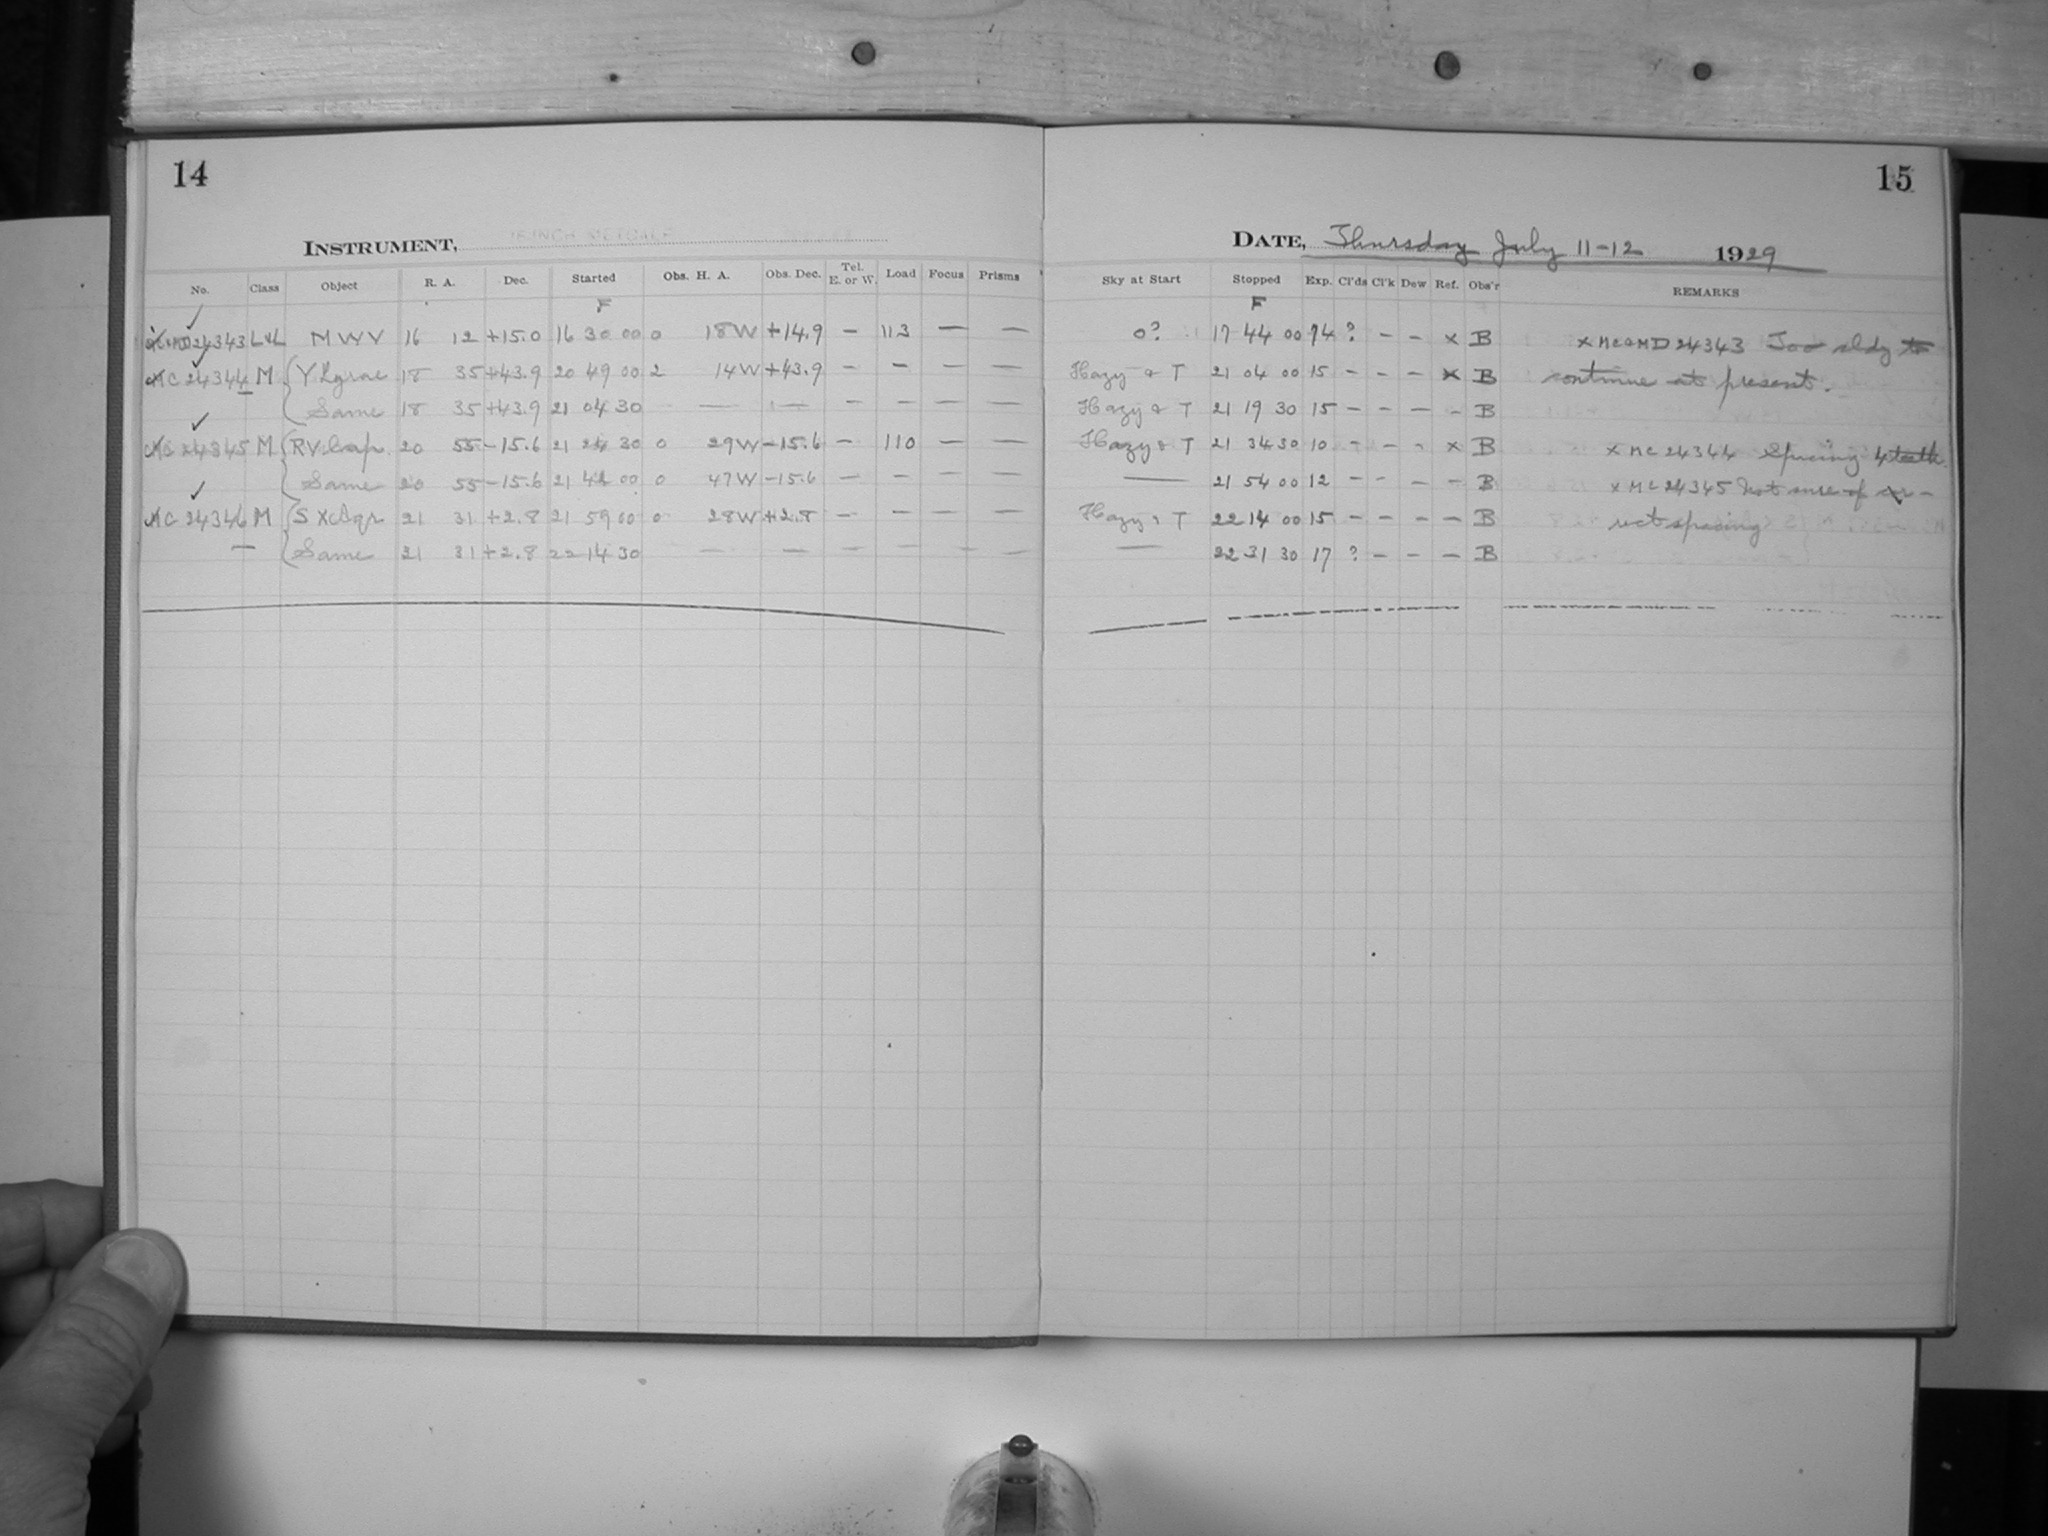 14
INSTRUMENT,
No. Class Object R. A. Dec. Started Obs. H. A. Obs. Dec. Tel. E. or W. Load Focus Prisms
F
24343 L MWV 16 12 +15.0 16 30 00 0 18W +14.9 — 113 — —
MC 24344 M Y Lyrae 18 35 +43.9 20 49 00 2 14W +43.9 — — — —
Same 18 35 +43.9 21 04 30 — — — — — —
MC 24345 M RV Cap 20 55 -15.6 21 24 30 0 29W -15.6 — 110 — —
Same 20 55 -15.6 21 42 00 0 47W -15.6 — —
MC 24346 M S X Aqr 21 31 +2.8 21 59 00 0 28W +2.8 — — — —
Same 21 31 +2.8 22 14 30 — — — — — —
15
DATE, Thursday July 11-12 1929
Sky at Start Stopped Exp. Cl'ds Cl'k Dew Ref. Obs'r REMARKS
F
0? 17 44 00 74 ? - - x B x MC & MD 24343 Too cldy to
Hazy & T 21 04 00 15 - - - x B continue at present.
Hazy & T 21 19 30 15 - - - - B
Hazy & T 21 34 30 10 - - - x B x MC 24344 Spacing 4 teeth
— 21 54 00 12 - - - - B x MC 24345 Not sure of cor-
Hazy & T 22 14 00 15 - - - - B rect spacing
— 22 31 30 17 ? - - - B